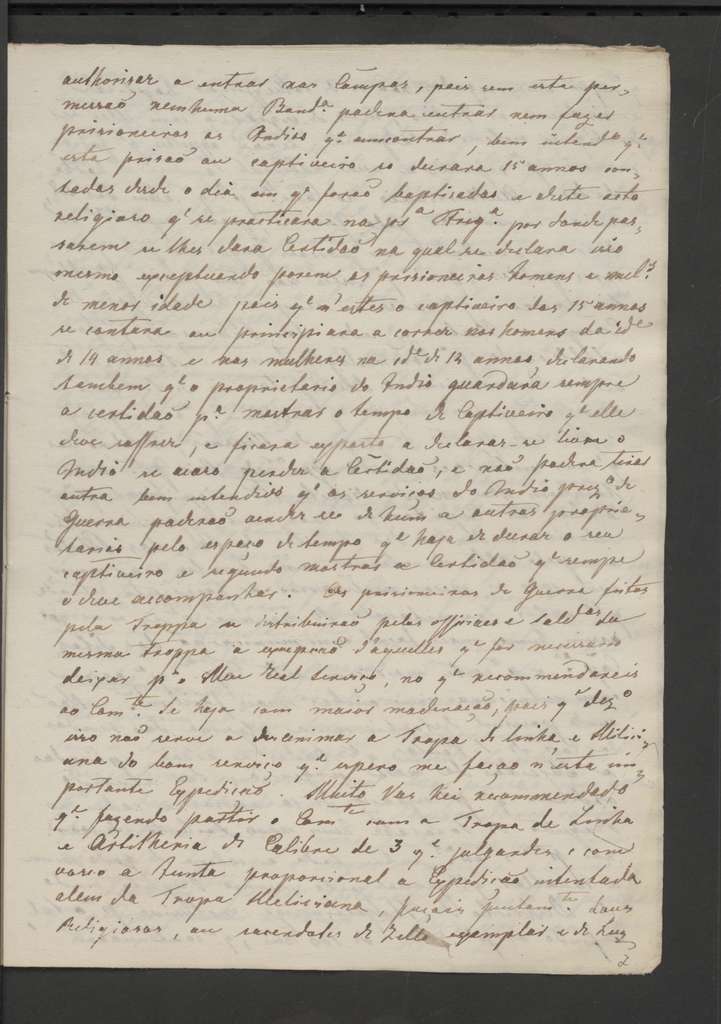 authorisar a entrar nos Campos, pois sem esta per-
missaõ nenhuma Band.ª podera entrar nem fazer
prisioneiros os Indios q.' encontrar, bem intend.º q.'
esta prisaõ ou captiveiro so durara 15 annos con-
tados desde o dia em q.' foraõ baptisados e deste acto
religioso q.' se practicara na pr.ª Freg.ª por donde pas-
sarem se lhes dara Certidaõ na qual se declara isso
mesmo exceptuando porem os prisioneiros homens e mul.s
de menor idade pois q.' n'estes o captiveiro dos 15 annos
se contara ou principiara a correr nos homens da id.e
de 14 annos e nas mulheres na id.e de 12 annos, declarando
tambem q.' o proprietario do Indio guardara sempre
a certidaõ p.ª mostrar o tempo de Captiveiro q.' elle
deve soffrer, e ficara exposto a declarar-se livre o
Indio se acaso perder a Certidaõ, e naõ podera tirar
outra bem intendido q.' os serviços do Indio pris.º de
Guerra poderaõ vender-se de hum a outros proprie-
tarios pelo espaço de tempo q.' haja de durar o seu
captiveiro e segundo mostrar a Certidaõ q.' sempe
o deve accompanhar. Os prisioneiros de Guerra feitos
pela Troppa se distribuiraõ pelos officiaes e Sald.os da
mesma troppa à excepçaõ d'aquelles q.' for necessario
deixar p.ª o Meu Real Serviço, no q.' recommendareis
ao Com.te Se haja com maior moderaçaõ, pois q.' dez.º
isso naõ serve a desanimar a Tropa de linha e Milici-
ana do bom serviço q.' espero me façaõ n'esta im-
portante Expediçaõ. Muito Vos Hei recommendado
q.' fazendo partir o Com.te com a Tropa de Linha
e Artilheria de Calibre de 3 q.' julgardes e con-
voco a Junta proporcional a Expediçaõ intentada
alem da Tropa Meliciana, junctam.te dous
Religiosos, ou sacerdotes de Zello exemplar e de Luz